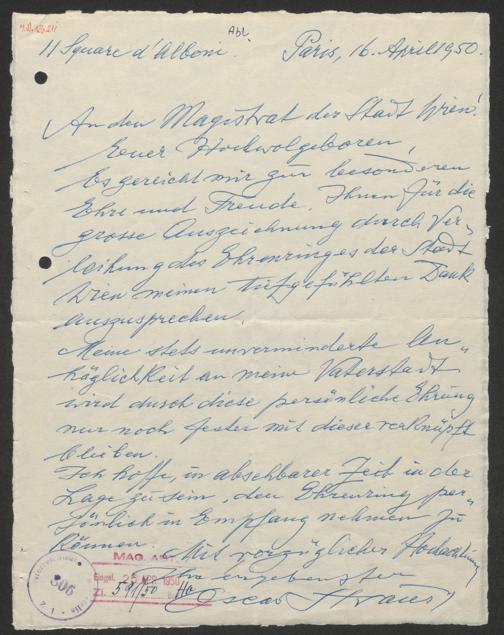 Abl.
11 Square d'Alboni. Paris, 16. April 1950.
An den Magistrat der Stadt Wien!
Euer Hochwolgeboren,
Es gereicht mir zur besonderen
Ehre und Freude, Ihnen für die
grosse Auszeichnung durch Ver-
leihung des Ehrenringes der Stadt
Wien meinen tiefgefühlten Dank
auszusprechen.
Meine stets unverminderte An-
häglichkeit an meine Vaterstadt
wird durch diese persönliche Ehrung
nur noch fester mit dieser verknüpft
bleiben.
Ich hoffe, in absehbarer Zeit in der
Lage zu sein, den Ehrenring per-
sönlich in Empfang nehmen zu
können. Mit vorzüglicher Hochachtung
MAG. ABT.
Ihr ergebenster
Eingel. 25 APR 1950
306
Zl. 591/50 Ha
Oscar Straus